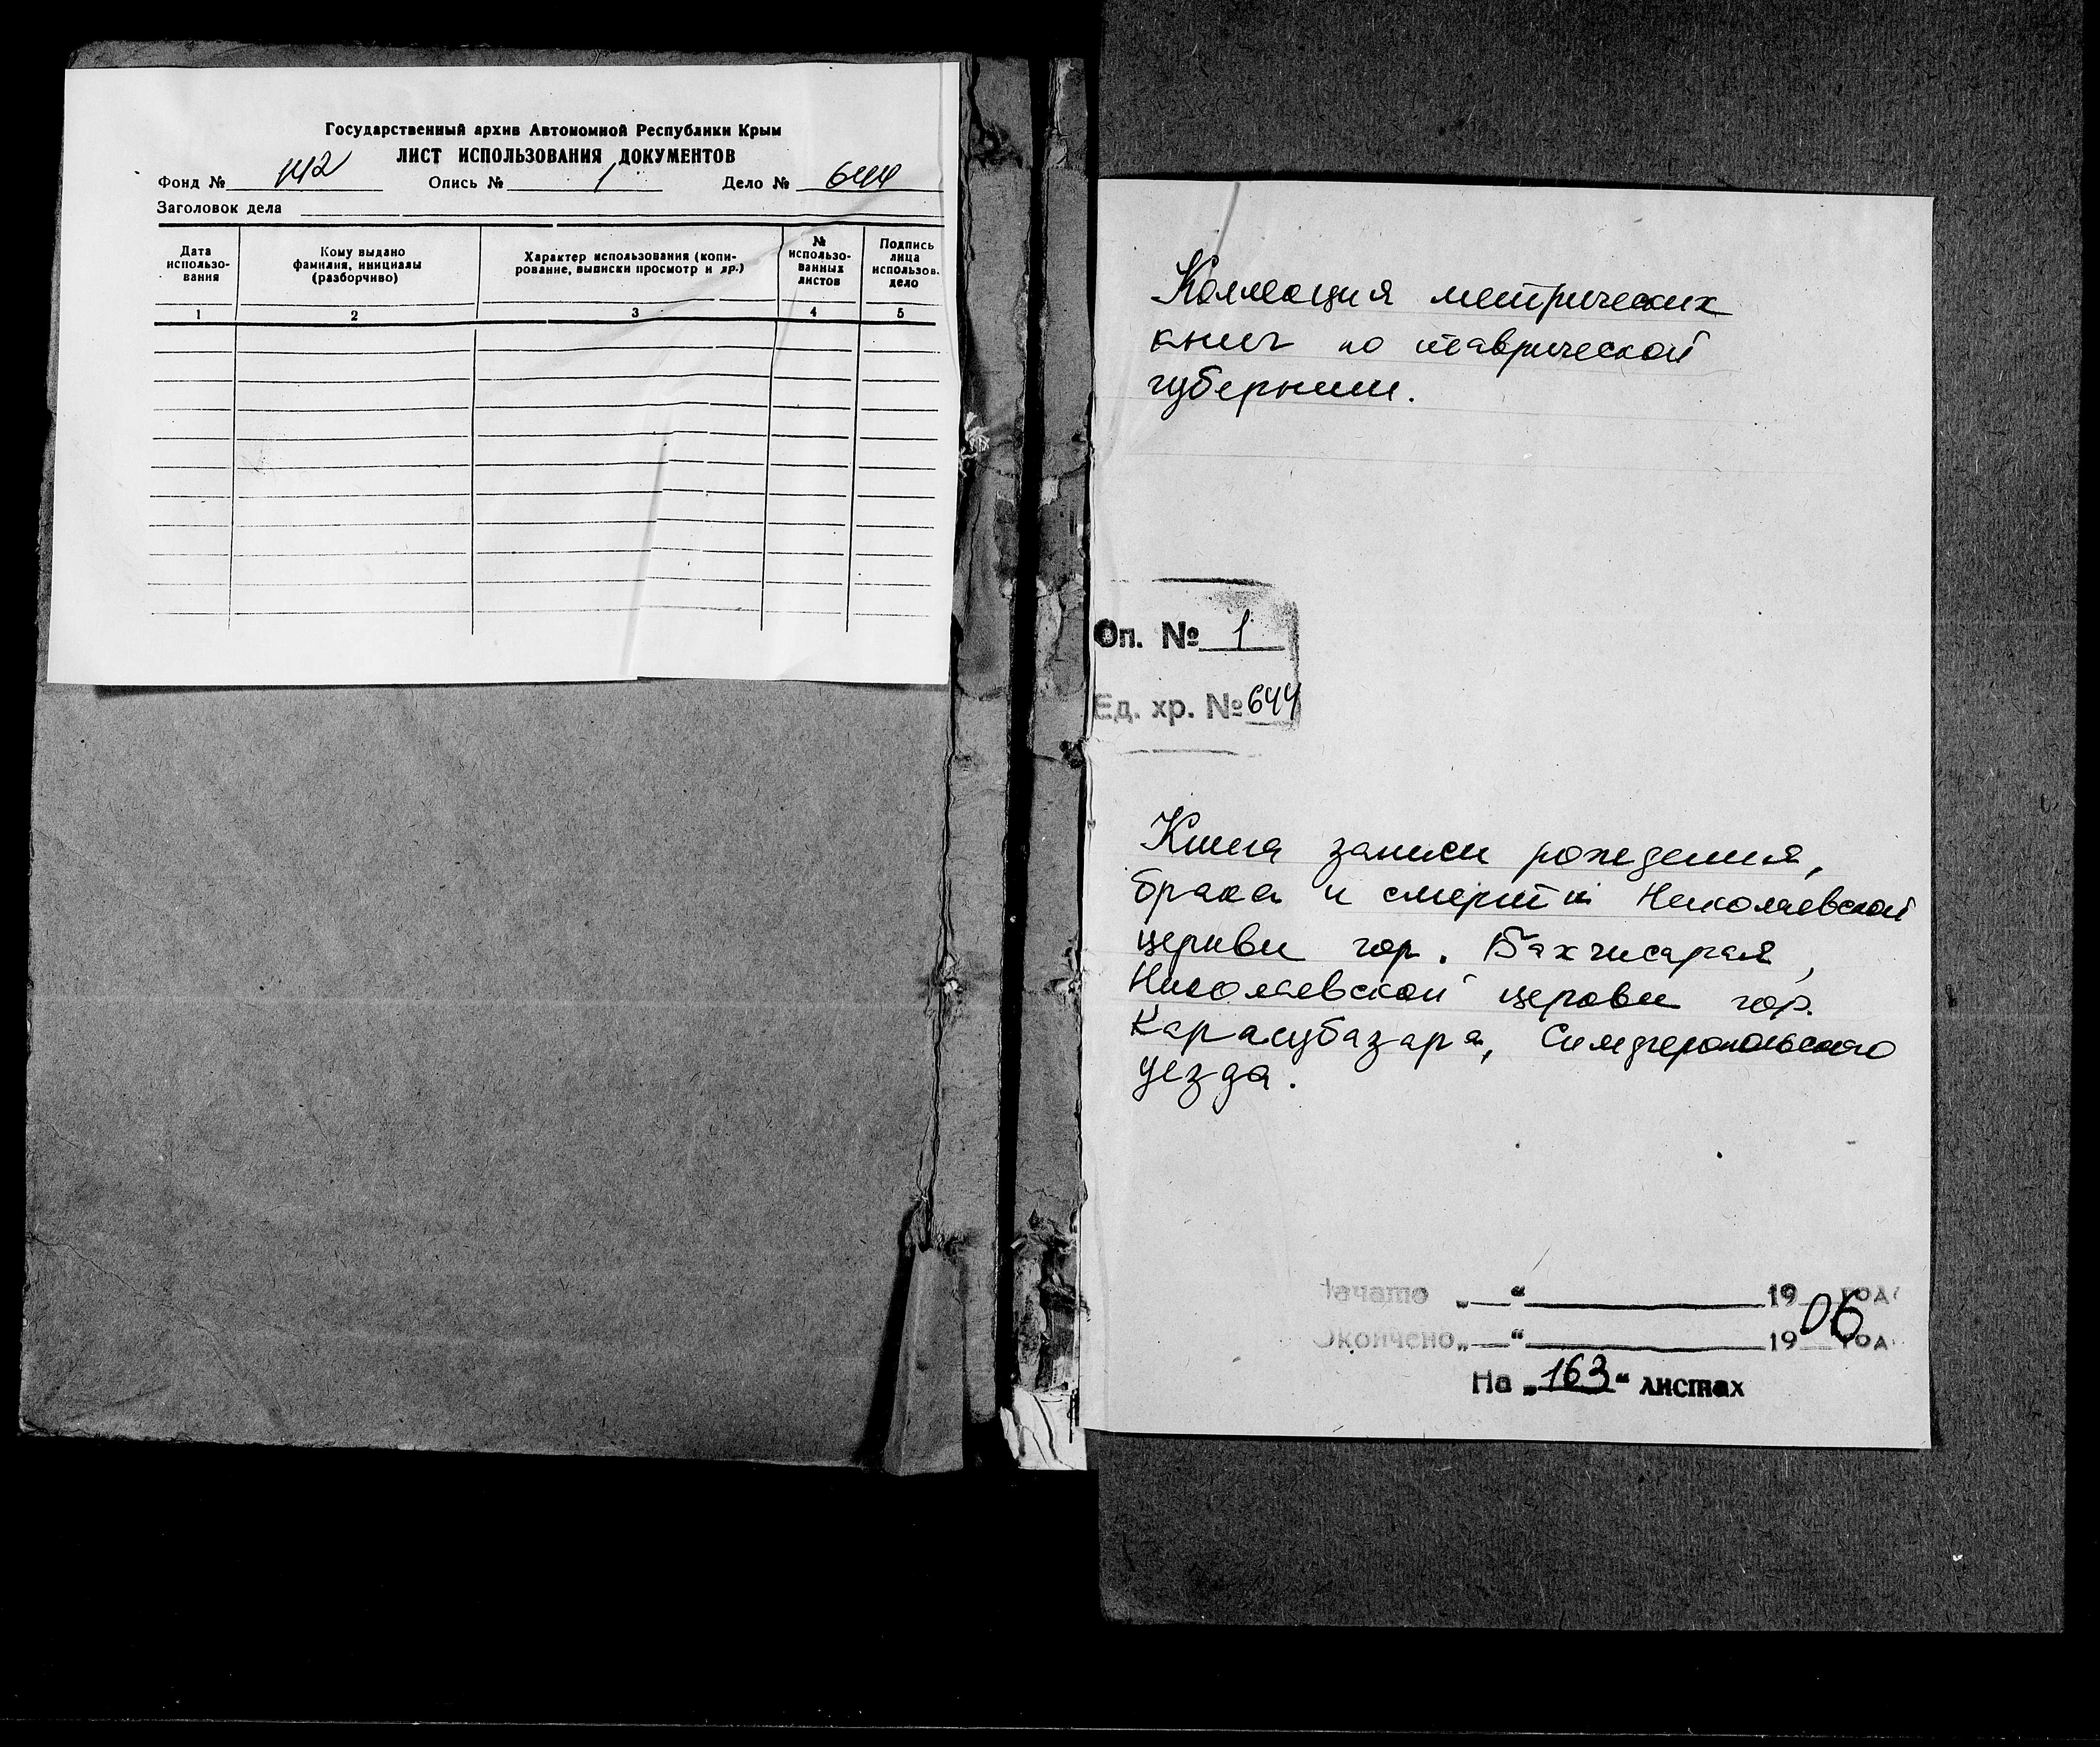 Государственный архив Автономной Республики Крым
ЛИСТ ИСПОЛЬЗОВАНИЯ ДОКУМЕНТОВ
Фонд № 142 Опись № 1 Дело № 644
Заголовок дела
Дата использо-вания
Кому выдано фамилия, инициалы (разборчиво)
Характер использования (копи-рование, выписки просмотр и др.)
№ использо-ванных листов
Подпись лица использов. дело
1 2 3 4 5
Коллекция метрических
книг по таврической
губернии.
Оп. № 1
Ед. хр. № 644
Книга записи рождения,
брака и смерти Николаевской
церкви гор. Бахчисарая,
Николаевской церкви гор.
Карасубазара, Симферопольского
уезда.
Начато „ “ 19 года
Окончено „ “ 1906 года
На „163“ листах